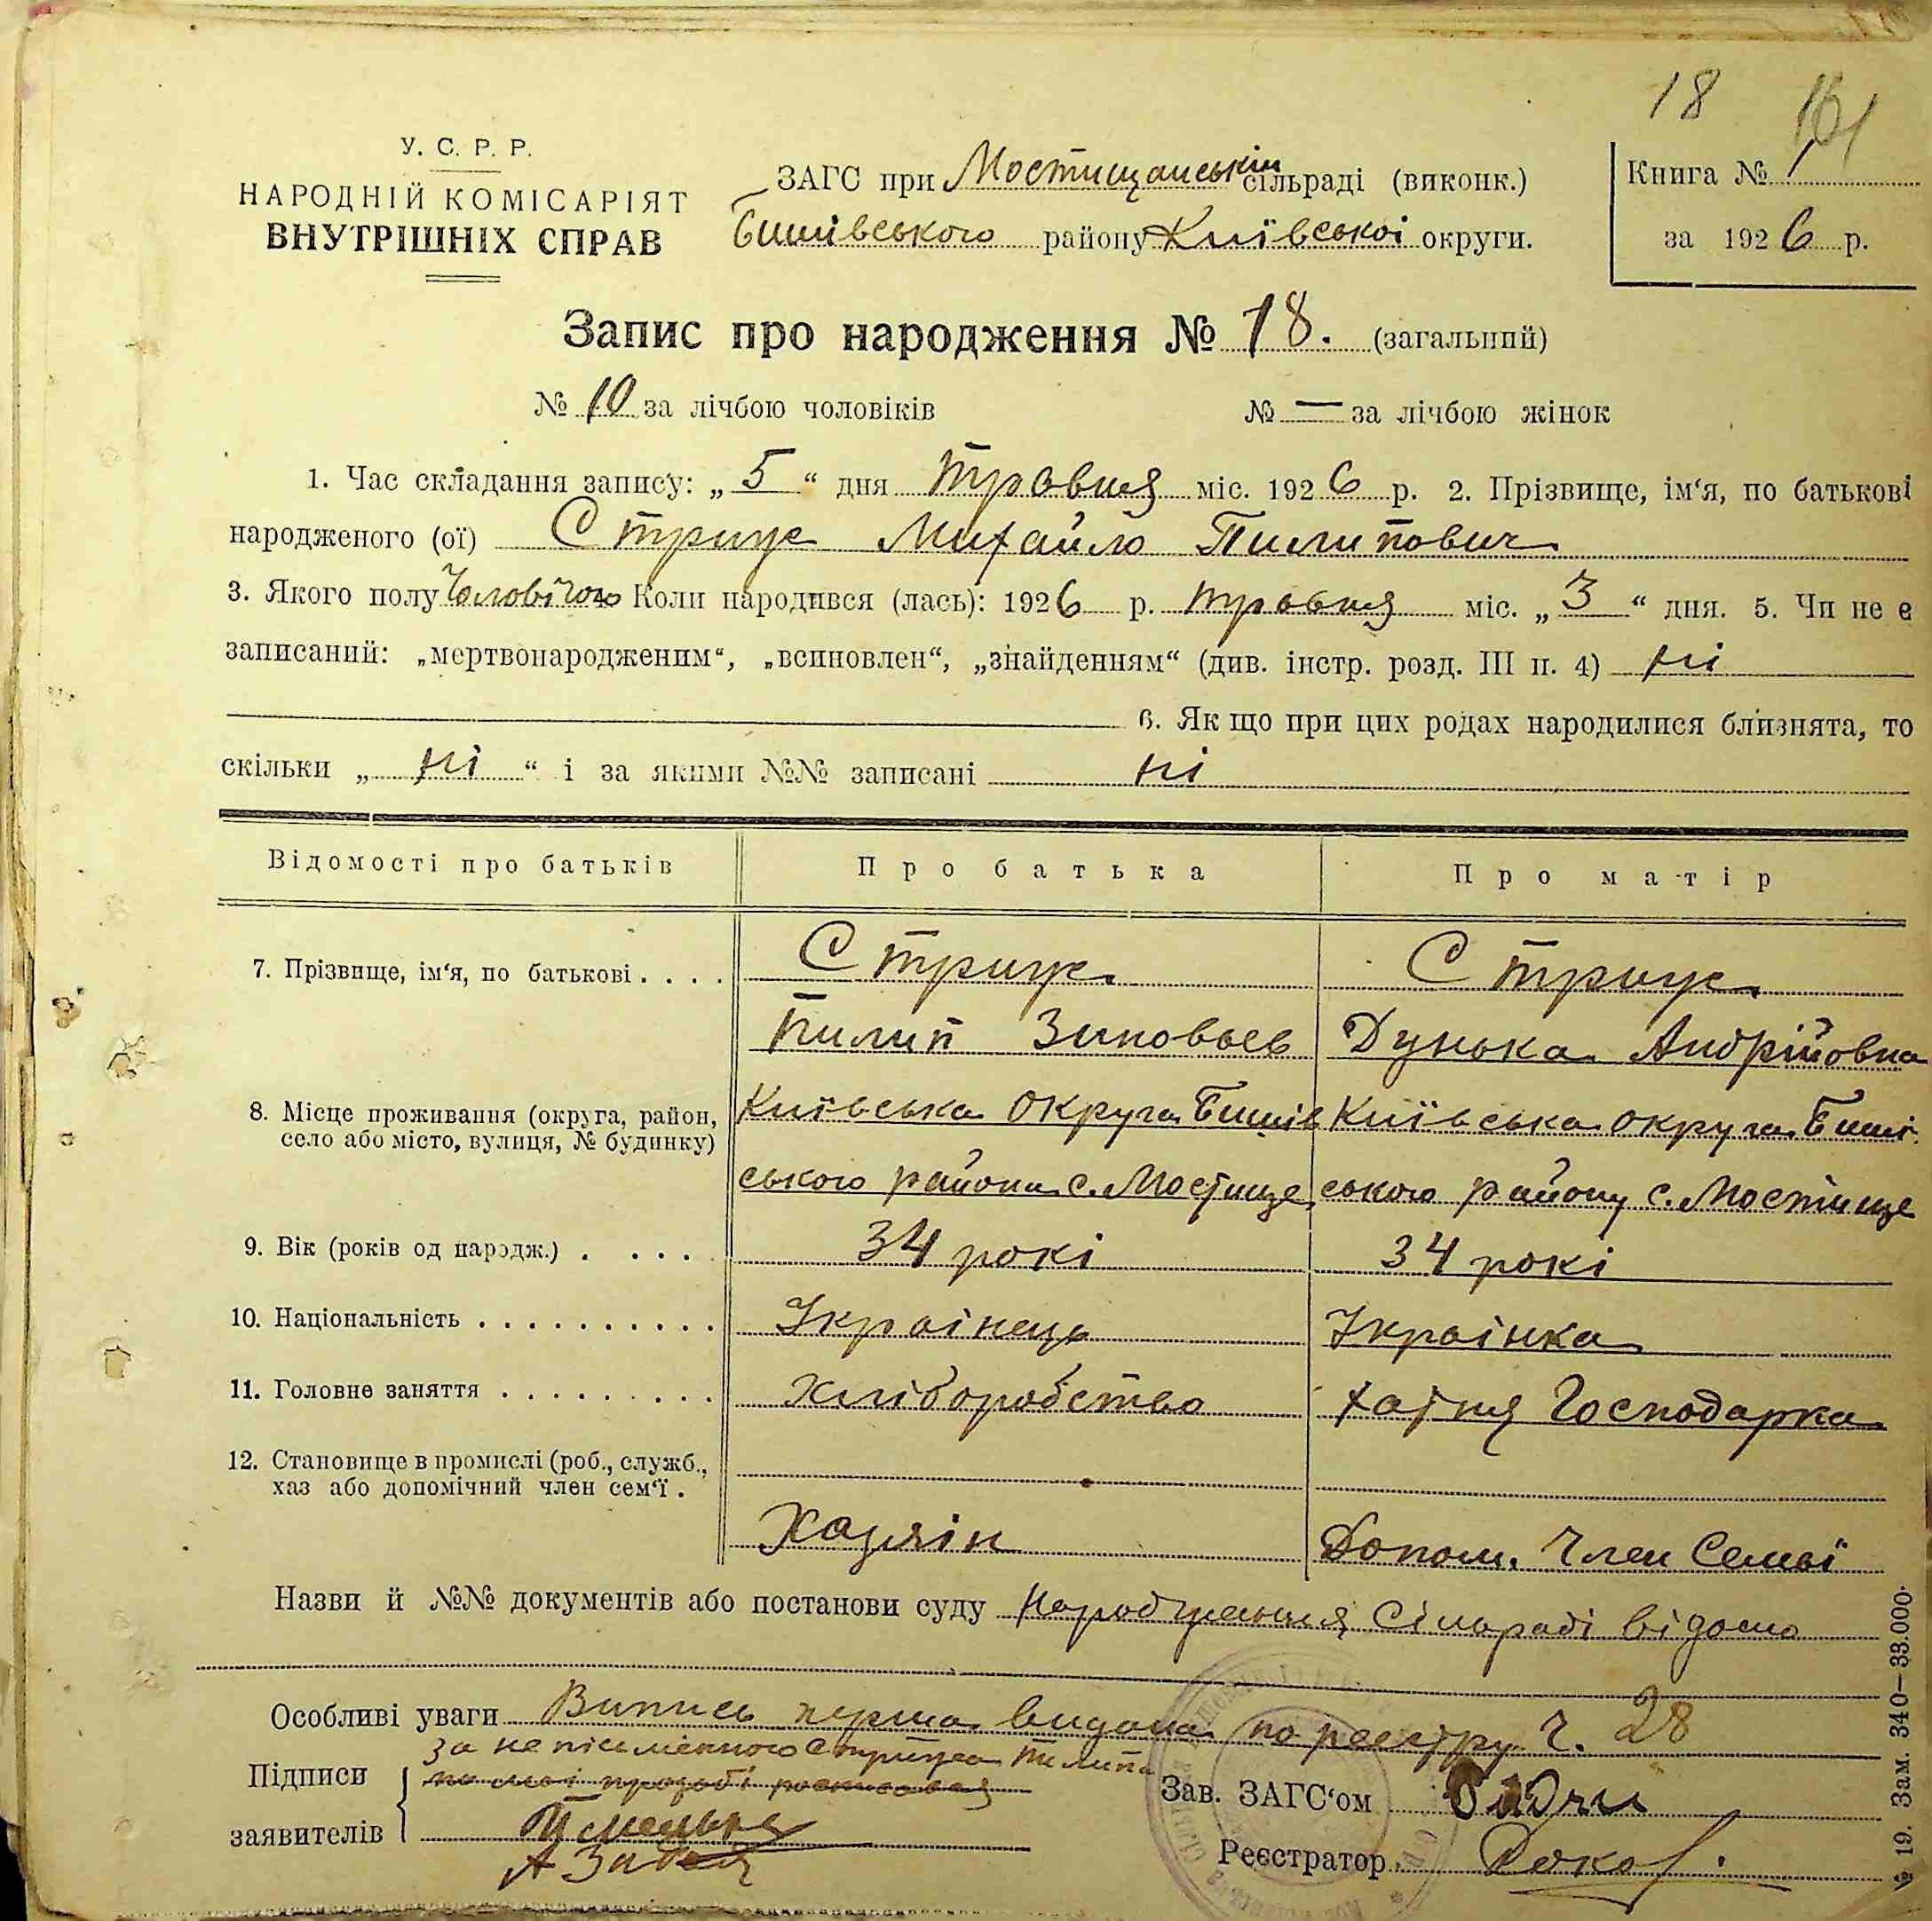 18 161
У. С. Р. Р.
НАРОДНІЙ КОМІСАРІЯТ
ВНУТРІШНІХ СПРАВ
ЗАГС при Мостищанській сільраді (виконк.)
Бишівського району Київської округи.
Книга № 1
за 1926 р.
Запис про народження № 18. (загальний)
№ 10 за лічбою чоловіків № — за лічбою жінок
1. Час складання запису: „5“ дня травня міс. 1926 р. 2. Прізвище, ім‘я, по батькові
народженого (ої) Стриже Михайло Пилипович
3. Якого полу Чоловічого Коли народився (лась): 1926 р. травня міс. „3“ дня. 5. Чи не є
записаний: „мертвонародженим“, „всиновлен“, „знайденням“ (див. інстр. розд. III п. 4) ні
6. Як що при цих родах народилися близнята, то
скільки „ні“ і за якими №№ записані ні
Відомості про батьків Про батька Про матір
7. Прізвище, ім‘я, по батькові . . . . Стриже Стриже
Пилип Зиновьев Дунька Андрійовна
8. Місце проживання (округа, район,
село або місто, вулиця, № будинку)
Київська округа Бишів Київська округа Биші
ського района с. Мостище ського району с. Мостище
9. Вік (років од народж.) . . . . 34 рокі 34 рокі
10. Національність . . . . . . . . . . Українець Українка
11. Головне заняття . . . . . . . . . Хліборобство хатня Господарка
12. Становище в промислі (роб., служб.,
хаз або допомічний член сем‘ї .
Хазяїн Допом. Член Семьї
Назви й №№ документів або постанови суду Народження Сільраді відомо
Особливі уваги Випись перша видана по реєстру Ч. 28
Підписи за неписьменного Пилипа
заявителів
Зав. ЗАГС‘ом
Реєстратор
№ 19. Зам. 340—33.000.